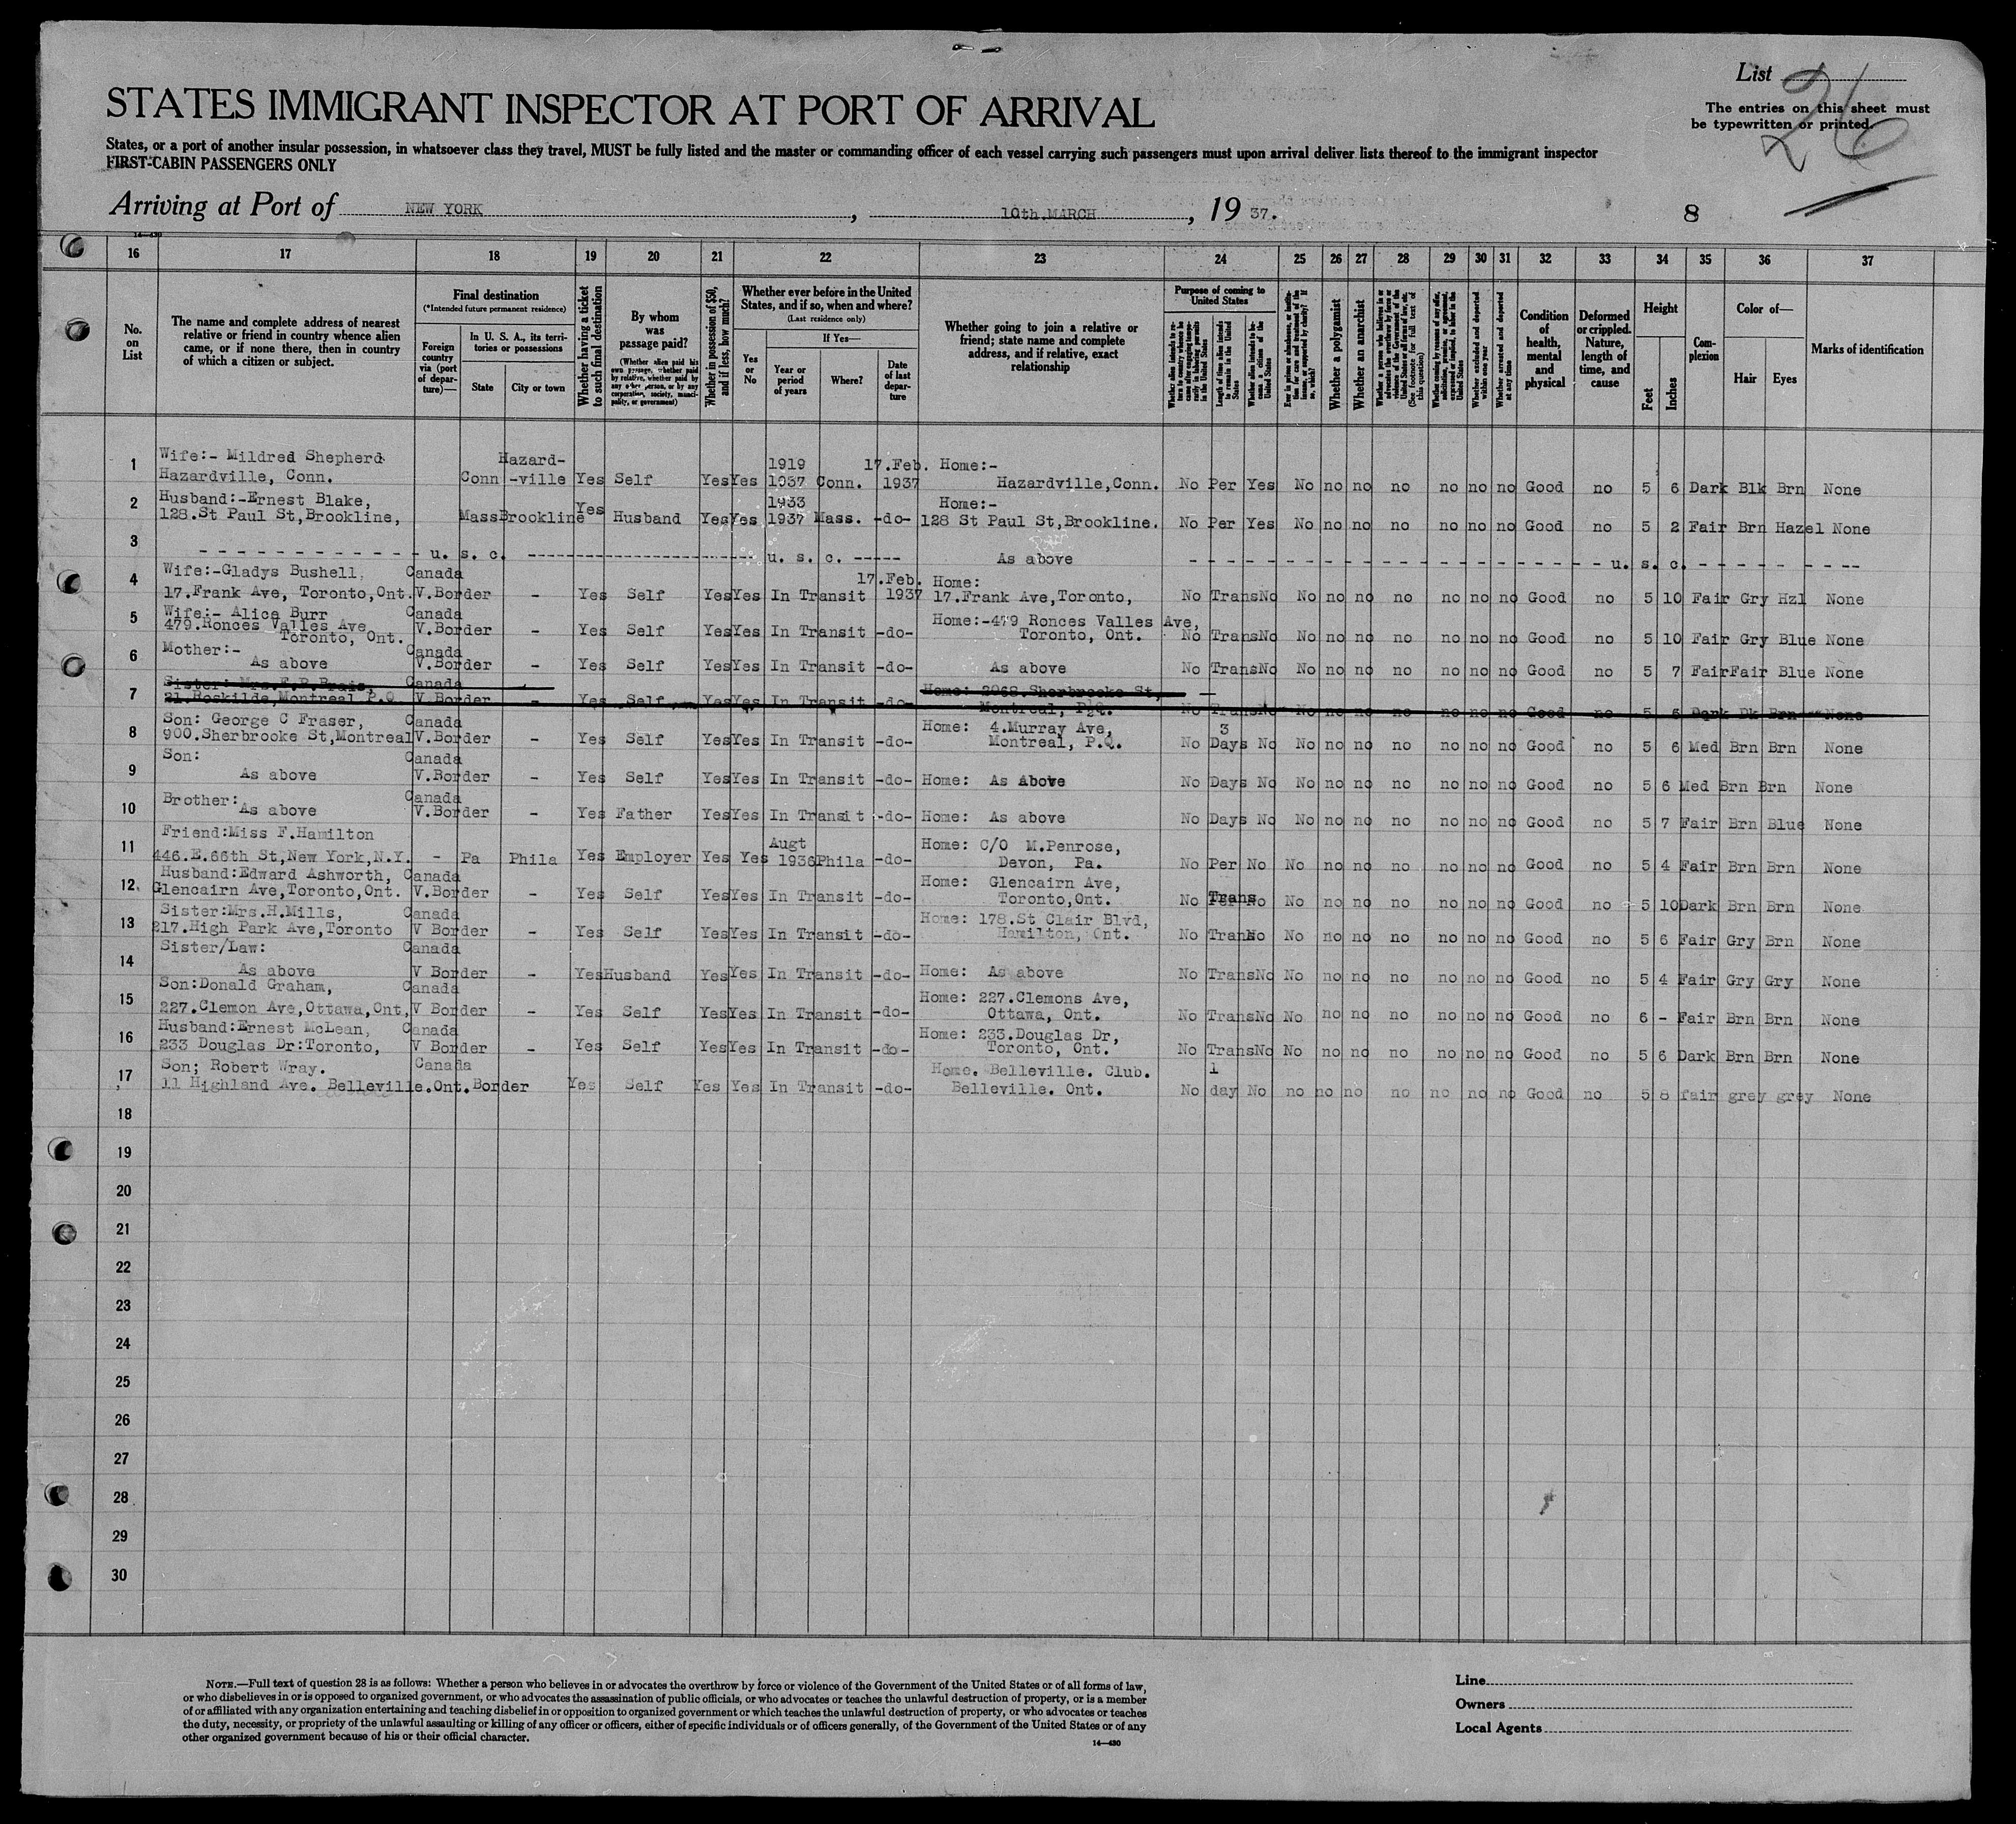 List 26
The entries on this sheet must
be typewritten or printed.
STATES IMMIGRANT INSPECTOR AT PORT OF ARRIVAL
States, or a port of another insular possession, in whatsoever class they travel, MUST be fully listed and the master or commanding officer of each vessel carrying such passengers must upon arrival deliver lists thereof to the immigrant inspector
FIRST-CABIN PASSENGERS ONLY
Arriving at Port of NEW YORK, 10th.MARCH, 19 37.
8
14—430
16 17 18 19 20 21 22 23 24 25 26 27 28 29 30 31 32 33 34 35 36 37
No. on List
The name and complete address of nearest relative or friend in country whence alien came, or if none there, then in country of which a citizen or subject.
Final destination
(*Intended future permanent residence)
Foreign country via (port of departure)—
In U. S. A., its territories or possessions
State
City or town
Whether having a ticket to such final destination
By whom was passage paid?
(Whether alien paid his own passage, whether paid by relative, whether paid by any other person, or by any corporation, society, municipality, or government)
Whether in possession of $50, and if less, how much?
Whether ever before in the United States, and if so, when and where?
(Last residence only)
Yes or No
If Yes—
Year or period of years
Where?
Date of last departure
Whether going to join a relative or friend; state name and complete address, and if relative, exact relationship
Purpose of coming to United States
Whether alien intends to return to country whence he came after engaging temporarily in laboring pursuits in the United States
Length of time alien intends to remain in the United States
Whether alien intends to become a citizen of the United States
Ever in prison or almshouse, or institution for care and treatment of the insane, or supported by charity? If so, which?
Whether a polygamist
Whether an anarchist
Whether a person who believes in or advocates the overthrow by force or violence of the Government of the United States or all forms of law, etc. (See footnote for full text of this question)
Whether coming by reason of any offer, solicitation, promise, or agreement, expressed or implied, to labor in the United States
Whether excluded and deported within one year
Whether arrested and deported at any time
Condition of health, mental and physical
Deformed or crippled. Nature, length of time, and cause
Height
Feet
Inches
Complexion
Color of—
Hair
Eyes
Marks of identification
1 Wife:- Mildred Shepherd Hazard- 1919 17.Feb. Home:-
Hazardville, Conn. Conn -ville Yes Self Yes Yes 1937 Conn. 1937 Hazardville,Conn. No Per Yes No no no no no no no Good no 5 6 Dark Blk Brn None
2 Husband:-Ernest Blake, Yes 1933 Home:-
128.St Paul St,Brookline, Mass Brookline Husband Yes Yes 1937 Mass. -do- 128 St Paul St,Brookline. No Per Yes No no no no no no no Good no 5 2 Fair Brn Hazel None
3 - - - - - - - - - - - - - u. s. c. ----------------------- u. s. c. ----- As above - - - - - - - - - - - - - - - - u. s. c. - - - - - - - - -
4 Wife:-Gladys Bushell, Canada 17.Feb. Home:
17.Frank Ave, Toronto,Ont. V.Border - Yes Self Yes Yes In Transit 1937 17.Frank Ave,Toronto, No Trans No No no no no no no no Good no 5 10 Fair Gry Hzl None
5 Wife:- Alice Burr Canada Home:-479 Ronces Valles Ave,
479.Ronces Valles Ave V.Border - Yes Self Yes Yes In Transit -do- Toronto, Ont. No Trans No No no no no no no no Good no 5 10 Fair Gry Blue None
Toronto, Ont.
6 Mother:- Canada
As above V.Border - Yes Self Yes Yes In Transit -do- As above No Trans No No no no no no no no Good no 5 7 Fair Fair Blue None
7 Sister: Mrs.E.R.Brais, Canada Home: 2068.Sherbrooke St,
21.Roskilde,Montreal P.Q V.Border - Yes Self Yes Yes In Transit -do- Montreal, P.Q. No Trans No No no no no no no no Good no 5 6 Dark Dk Brn None
8 Son: George C Fraser, Canada Home: 4.Murray Ave, 3
900.Sherbrooke St,Montreal V.Border - Yes Self Yes Yes In Transit -do- Montreal, P.Q. No Days No No no no no no no no Good no 5 6 Med Brn Brn None
9 Son: Canada
As above V.Border - Yes Self Yes Yes In Transit -do- Home: As Above No Days No No no no no no no no Good no 5 6 Med Brn Brn None
10 Brother: Canada
As above V.Border - Yes Father Yes Yes In Transit -do- Home: As above No Days No No no no no no no no Good no 5 7 Fair Brn Blue None
11 Friend:Miss F.Hamilton Augt Home: C/O M.Penrose,
446.E.66th St,New York,N.Y. - Pa Phila Yes Employer Yes Yes 1936 Phila -do- Devon, Pa. No Per No No no no no no no no Good no 5 4 Fair Brn Brn None
12. Husband:Edward Ashworth, Canada Home: Glencairn Ave,
Glencairn Ave,Toronto,Ont. V.Border - Yes Self Yes Yes In Transit -do- Toronto,Ont. No Trans No No no no no no no no Good no 5 10 Dark Brn Brn None
13 Sister:Mrs.H.Mills, Canada Home: 178.St Clair Blvd,
217.High Park Ave,Toronto V Border - Yes Self Yes Yes In Transit -do- Hamilton, Ont. No Trans No No no no no no no no Good no 5 6 Fair Gry Brn None
14 Sister/Law: Canada
As above V Border - Yes Husband Yes Yes In Transit -do- Home: As above No Trans No No no no no no no no Good no 5 4 Fair Gry Gry None
15 Son:Donald Graham, Canada Home: 227.Clemons Ave,
227.Clemon Ave,Ottawa,Ont, V Border - Yes Self Yes Yes In Transit -do- Ottawa, Ont. No Trans No No no no no no no no Good no 6 - Fair Brn Brn None
16 Husband:Ernest McLean, Canada Home: 233.Douglas Dr,
233 Douglas Dr:Toronto, V Border - Yes Self Yes Yes In Transit -do- Toronto, Ont. No Trans No No no no no no no no Good no 5 6 Dark Brn Brn None
17 Son; Robert Wray. Canada Home. Belleville. Club. 1
11 Highland Ave. Belleville.Ont. Border Yes Self Yes Yes In Transit -do- Belleville. Ont. No day No no no no no no no no Good no 5 8 fair grey grey None
18
19
20
21
22
23
24
25
26
27
28
29
30
NOTE.—Full text of question 28 is as follows: Whether a person who believes in or advocates the overthrow by force or violence of the Government of the United States or of all forms of law,
or who disbelieves in or is opposed to organized government, or who advocates the assassination of public officials, or who advocates or teaches the unlawful destruction of property, or is a member
of or affiliated with any organization entertaining and teaching disbelief in or opposition to organized government or which teaches the unlawful destruction of property, or who advocates or teaches
the duty, necessity, or propriety of the unlawful assaulting or killing of any officer or officers, either of specific individuals or of officers generally, of the Government of the United States or of any
other organized government because of his or their official character.
14—430
Line
Owners
Local Agents